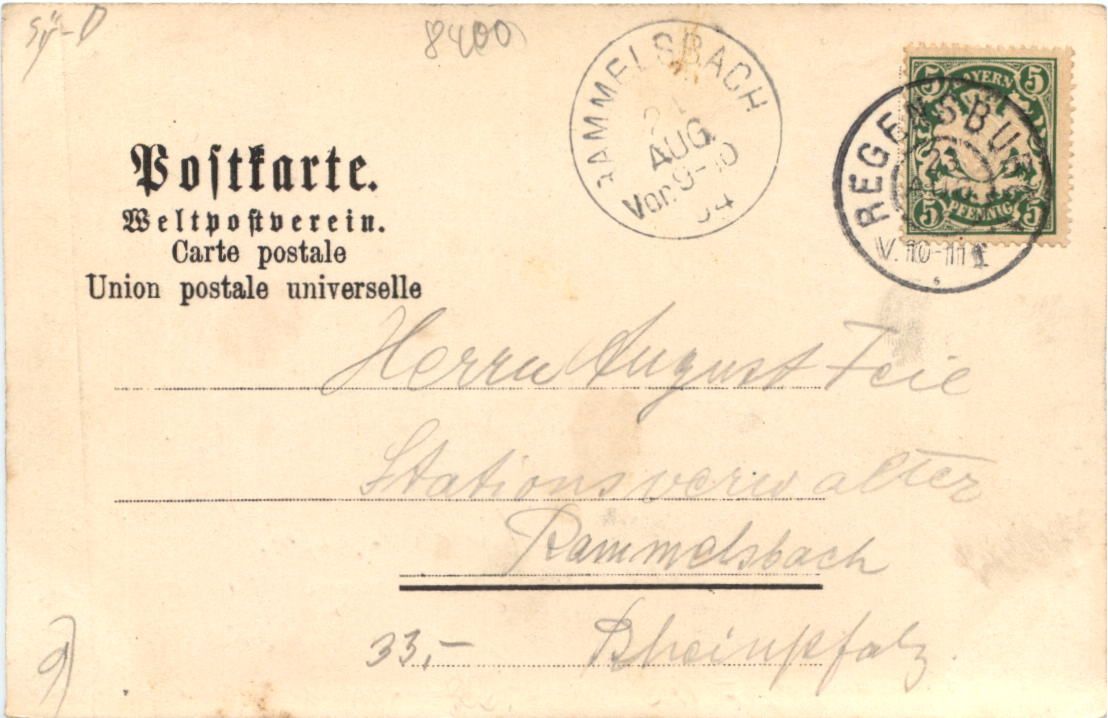 8400
RAMMELSBACH
24
AUG.
Vor. 9-10
04
5 BAYERN 5
5 PFENNIG 5
REGENSBU
23
V. 10-11
Postkarte.
Weltpostverein.
Carte postale
Union postale universelle
Herrn August Feie
Stationsverwalter
Rammelsbach
33,- Rheinpfalz.